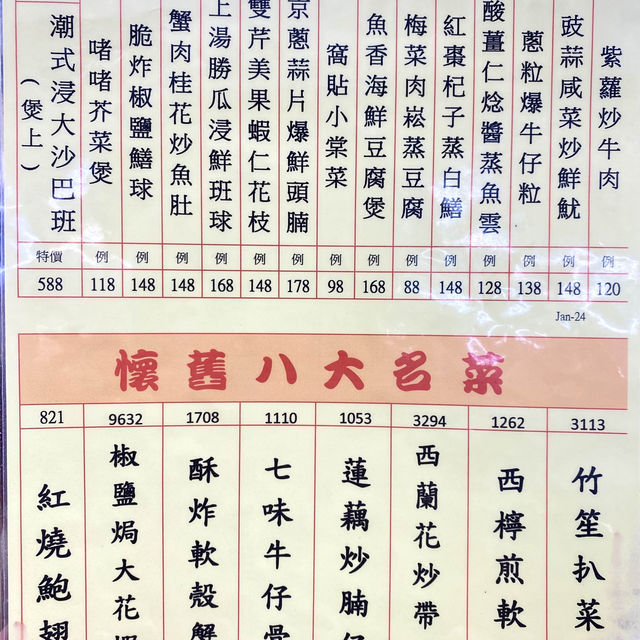 紫蘿炒牛肉
例
120
豉蒜咸菜炒鮮魷
例
148
蔥粒爆牛仔粒
例
138
酸薑仁焾醬蒸魚雲
例
128
紅棗杞子蒸白鱔
例
148
梅菜肉崧蒸豆腐
例
88
魚香海鮮豆腐煲
例
168
窩貼小棠菜
例
98
京蔥蒜片爆鮮頭腩
例
178
雙芹美果蝦仁花枝
例
148
上湯勝瓜浸鮮班球
例
168
蟹肉桂花炒魚肚
例
148
脆炸椒鹽鱔球
例
148
啫啫芥菜煲
例
118
潮式浸大沙巴班
(煲上)
特價
588
Jan-24
懷舊八大名菜
3113
竹笙扒菜
1262
西檸煎軟
3294
西蘭花炒帶
1053
蓮藕炒腩
1110
七味牛仔骨
1708
酥炸軟殼蟹
9632
椒鹽焗大花
821
紅燒鮑翅